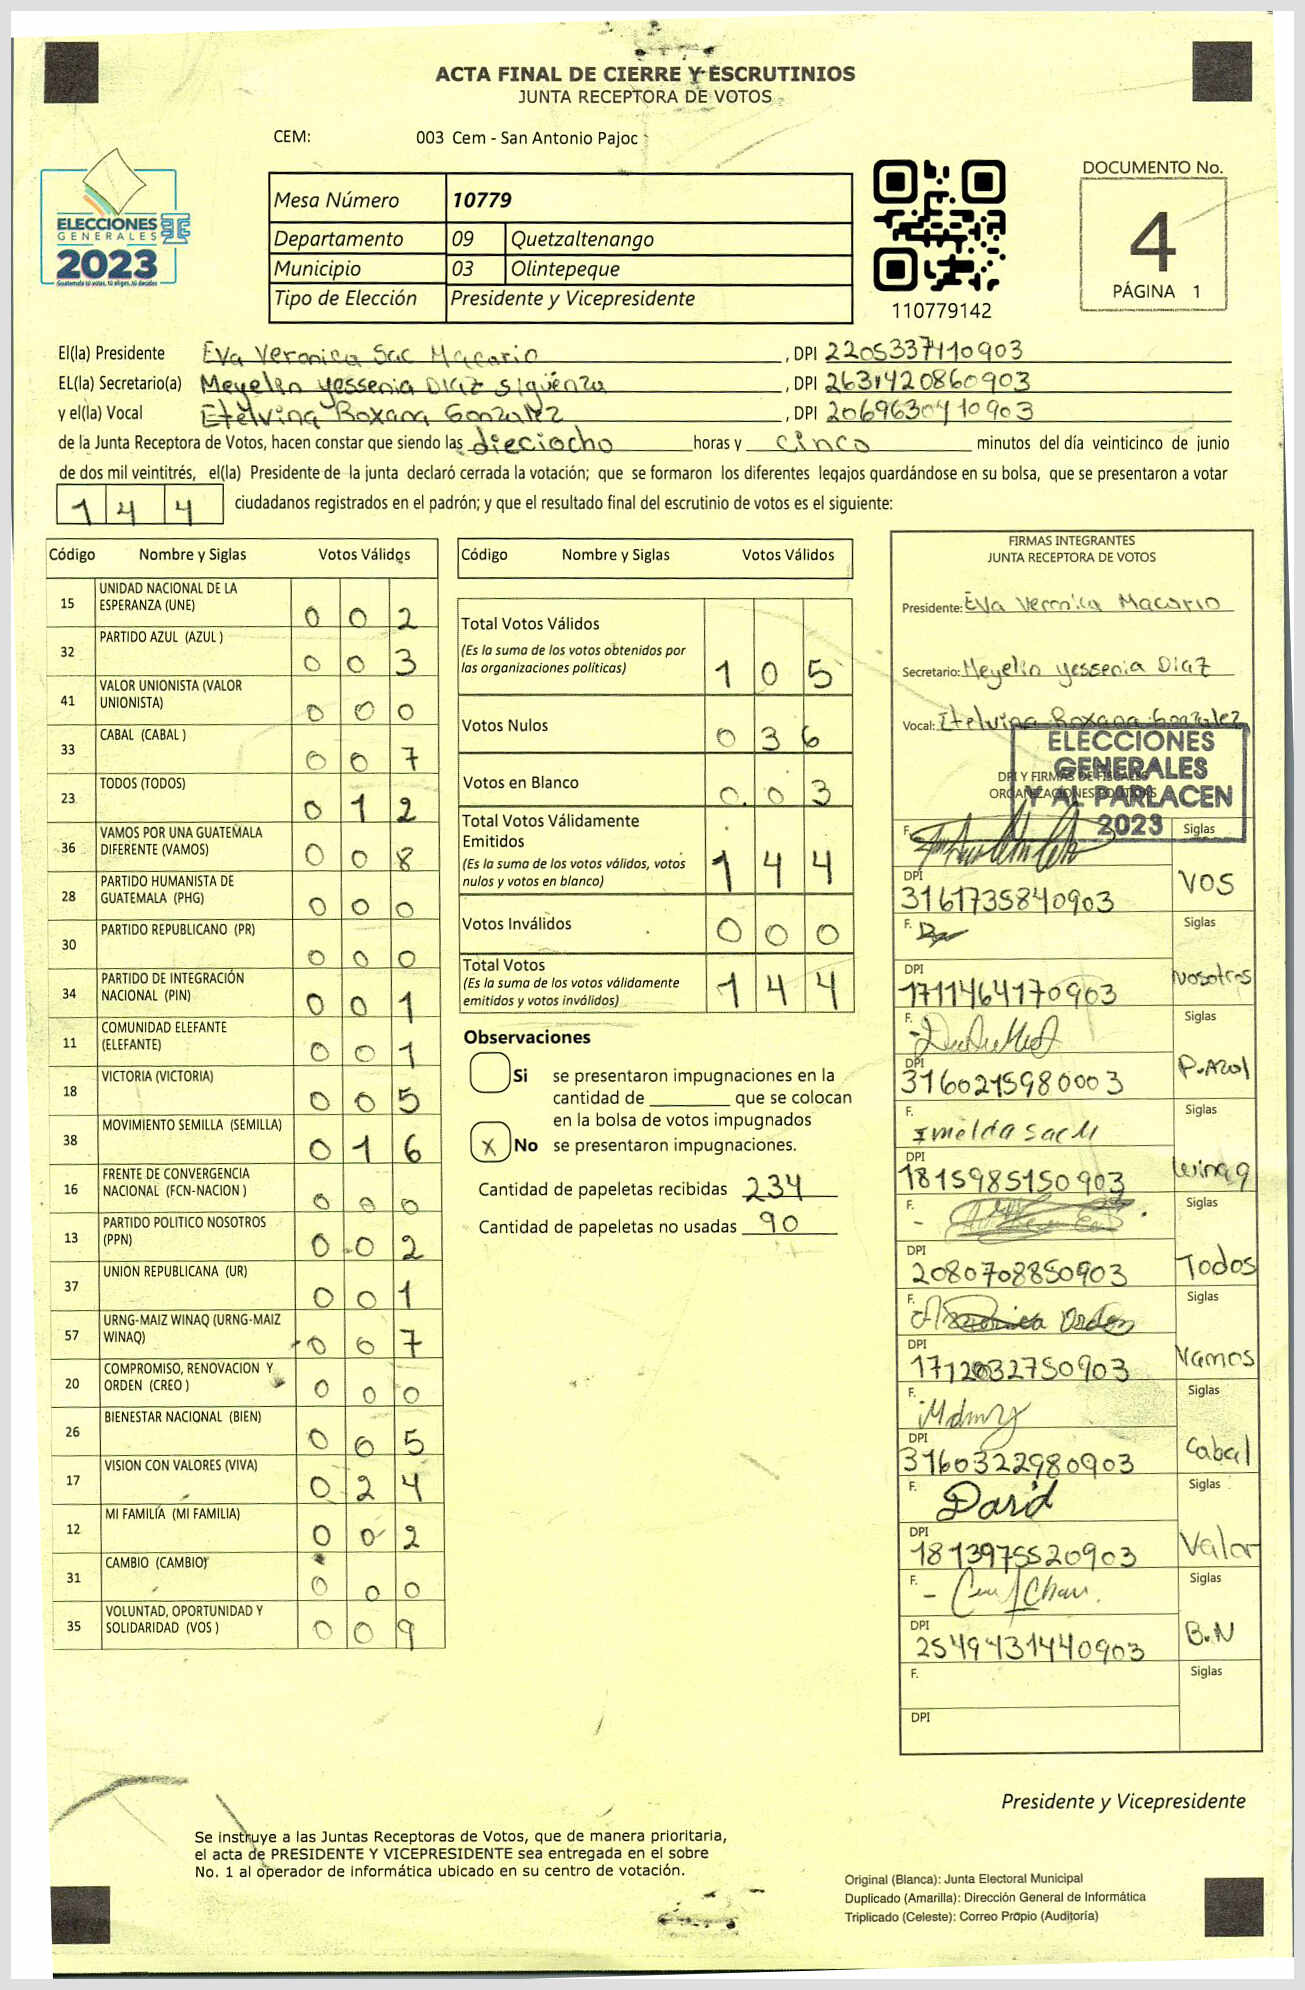 ACTA FINAL DE CIERRE Y ESCRUTINIOS
JUNTA RECEPTORA DE VOTOS
CEM: 003 Cem - San Antonio Pajoc
ELECCIONES
GENERALES
2023
Guatemala tú votas, tú eliges, tú decides
Mesa Número 10779
Departamento 09 Quetzaltenango
Municipio 03 Olintepeque
Tipo de Elección Presidente y Vicepresidente
110779142
DOCUMENTO No.
4
PÁGINA 1
El(la) Presidente Eva Veronica Sac Macario, DPI 2205337410903
EL(la) Secretario(a) Meyelin Yessenia Diaz Sigüenza, DPI 2631420860903
y el(la) Vocal Etelvina Roxana Gonzalez, DPI 2069630410903
de la Junta Receptora de Votos, hacen constar que siendo las dieciocho horas y cinco minutos del día veinticinco de junio
de dos mil veintitrés, el(la) Presidente de la junta declaró cerrada la votación; que se formaron los diferentes legajos quardándose en su bolsa, que se presentaron a votar
144 ciudadanos registrados en el padrón; y que el resultado final del escrutinio de votos es el siguiente:
Código Nombre y Siglas Votos Válidos
15 UNIDAD NACIONAL DE LA ESPERANZA (UNE) 0 0 2
32 PARTIDO AZUL (AZUL ) 0 0 3
41 VALOR UNIONISTA (VALOR UNIONISTA) 0 0 0
33 CABAL (CABAL ) 0 0 7
23 TODOS (TODOS) 0 1 2
36 VAMOS POR UNA GUATEMALA DIFERENTE (VAMOS) 0 0 8
28 PARTIDO HUMANISTA DE GUATEMALA (PHG) 0 0 0
30 PARTIDO REPUBLICANO (PR) 0 0 0
34 PARTIDO DE INTEGRACIÓN NACIONAL (PIN) 0 0 1
11 COMUNIDAD ELEFANTE (ELEFANTE) 0 0 1
18 VICTORIA (VICTORIA) 0 0 5
38 MOVIMIENTO SEMILLA (SEMILLA) 0 1 6
16 FRENTE DE CONVERGENCIA NACIONAL (FCN-NACION ) 0 0 0
13 PARTIDO POLITICO NOSOTROS (PPN) 0 0 2
37 UNION REPUBLICANA (UR) 0 0 1
57 URNG-MAIZ WINAQ (URNG-MAIZ WINAQ) 0 0 7
20 COMPROMISO, RENOVACION Y ORDEN (CREO ) 0 0 0
26 BIENESTAR NACIONAL (BIEN) 0 0 5
17 VISION CON VALORES (VIVA) 0 2 4
12 MI FAMILIA (MI FAMILIA) 0 0 2
31 CAMBIO (CAMBIO) 0 0 0
35 VOLUNTAD, OPORTUNIDAD Y SOLIDARIDAD (VOS ) 0 0 9
Código Nombre y Siglas Votos Válidos
Total Votos Válidos 1 0 5
(Es la suma de los votos obtenidos por
las organizaciones politicas)
Votos Nulos 0 3 6
Votos en Blanco 0 0 3
Total Votos Válidamente
Emitidos 1 4 4
(Es la suma de los votos válidos, votos
nulos y votos en blanco)
Votos Inválidos 0 0 0
Total Votos 1 4 4
(Es la suma de los votos válidamente
emitidos y votos inválidos)
Observaciones
Si se presentaron impugnaciones en la
cantidad de ________ que se colocan
en la bolsa de votos impugnados
x No se presentaron impugnaciones.
Cantidad de papeletas recibidas 234
Cantidad de papeletas no usadas 90
FIRMAS INTEGRANTES
JUNTA RECEPTORA DE VOTOS
Presidente: Eva Veronica Macario
Secretario: Meyelin Yessenia Diaz
Vocal: Etelvina Roxana Gonzalez
DPI Y FIRMAS DE FISCALES
ORGANIZACIONES POLÍTICAS
ELECCIONES
GENERALES
Y AL PARLACEN
2023
F. Siglas
DPI 3161735840903 VOS
F. Siglas
DPI 1711464170903 Nosotros
F. Siglas
DPI 3160215980003 P.Azul
F. Imelda Sac M Siglas
DPI 1815985150903 Winaq
F. Siglas
DPI 2080708850903 Todos
F. Siglas
DPI 1712032750903 Vamos
F. Siglas
DPI 3160322980903 Cabal
F. David Siglas
DPI 1813975520903 Valor
F. Siglas
DPI 2549431440903 B.N
F. Siglas
DPI
Presidente y Vicepresidente
Se instruye a las Juntas Receptoras de Votos, que de manera prioritaria,
el acta de PRESIDENTE Y VICEPRESIDENTE sea entregada en el sobre
No. 1 al operador de informática ubicado en su centro de votación.
Original (Blanca): Junta Electoral Municipal
Duplicado (Amarilla): Dirección General de Informática
Triplicado (Celeste): Correo Propio (Auditoría)